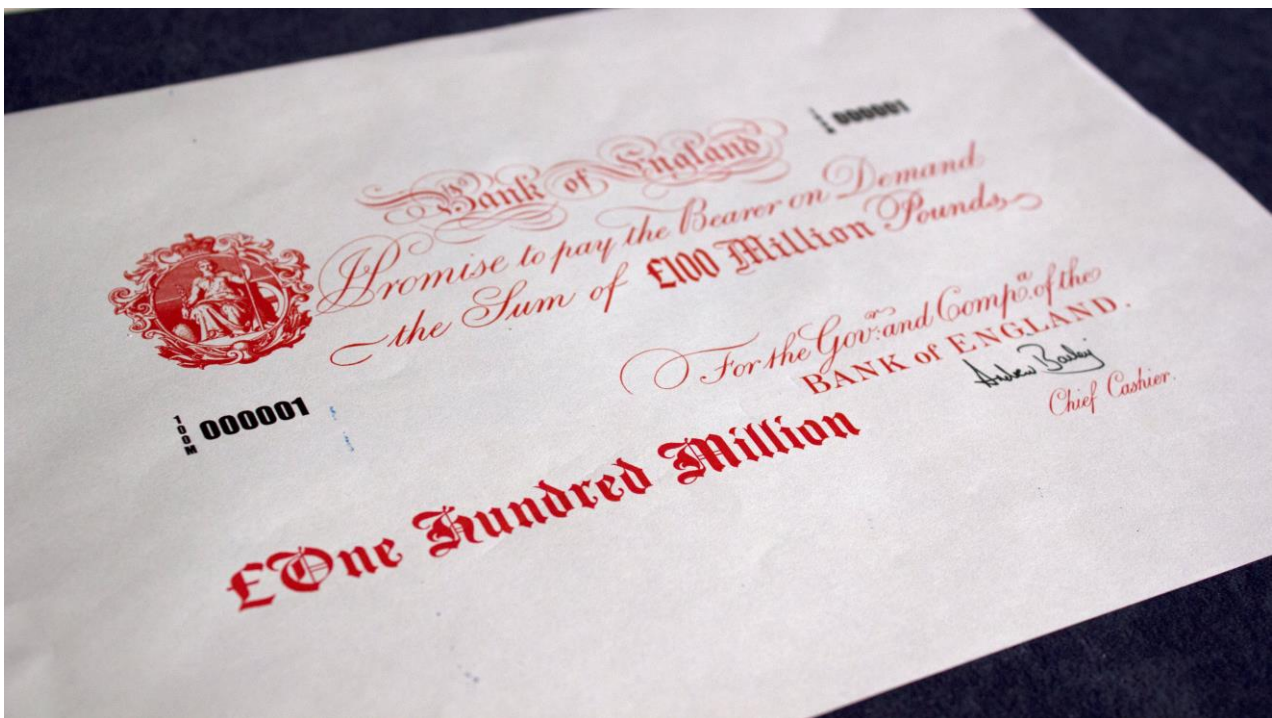 100M 000001
Bank of England
I Promise to pay the Bearer on Demand
the Sum of £100 Million Pounds
For the Govr. and Compa. of the
BANK of ENGLAND.
Andrew Bailey
Chief Cashier.
100M 000001
£One Hundred Million